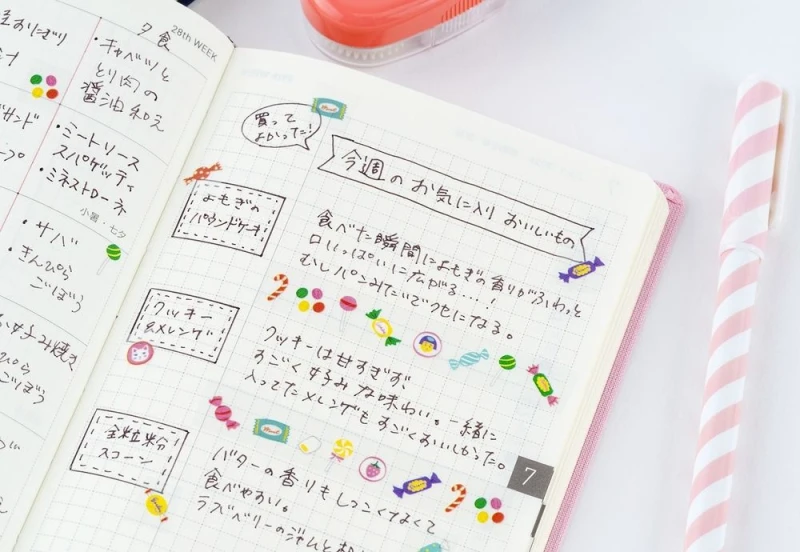 おにぎり
夕食
28th WEEK
・キャベツと
とり肉の
醤油和え
・ミートソース
スパゲッティ
・ミネストローネ
小暑・七夕
・サバ
・きんぴら
ごぼう
お好み焼き
ごぼう
買って
よかった!
今週のお気に入りおいしいもの
よもぎの
パウンドケーキ
食べた瞬間によもぎの香りがふわっと
口いっぱいに広がる…!
むしパンみたいでクセになる。
クッキー
&メレンゲ
クッキーは甘すぎず、
すごく好みな味わい。一緒に
入ってたメレンゲもすごくおいしかった。
7
全粒粉
スコーン
バターの香りもしつこくなくて
食べやすい。
ラズベリーのジャムと